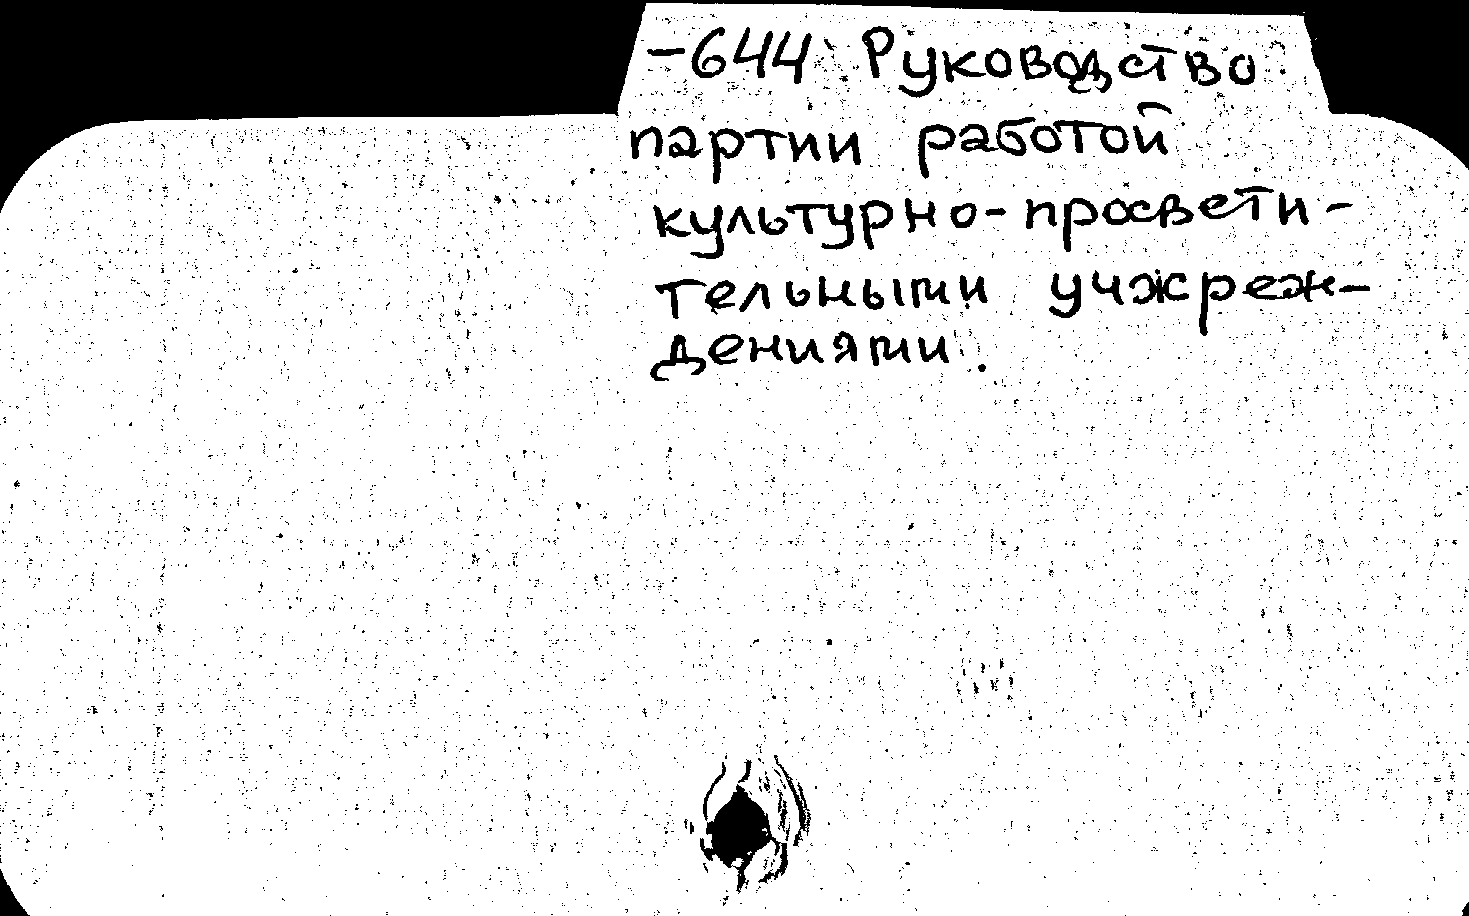 -644 Руководство
партии работой
культурно-просвети-
тельными учжреж-
дениями.